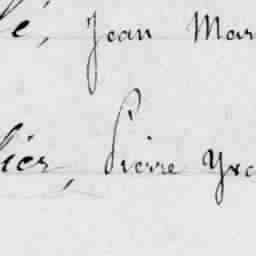 é, Jean Mar
lier, Pierre Yve